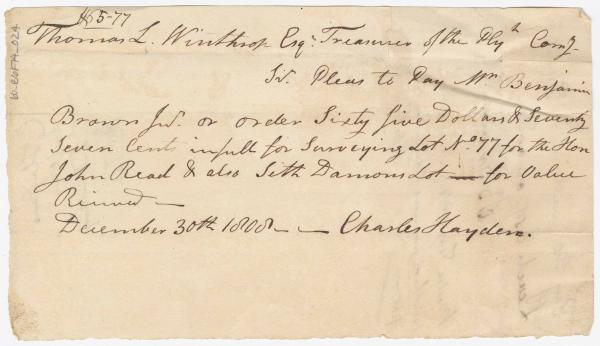 $65-77
Thomas L. Winthrop Esqr. Treasurer of the Plyh Comy-
Sr. Pleas to Pay Mr Benjamin
Brown Jr. or order Sixty five Dollars & Seventy
Seven Cents in full for Surveying Lot No 77 for the Hon
John Read & also Seth Damons Lot — for Value
Recived —
December 30th 1808 — — Charles Hayden.